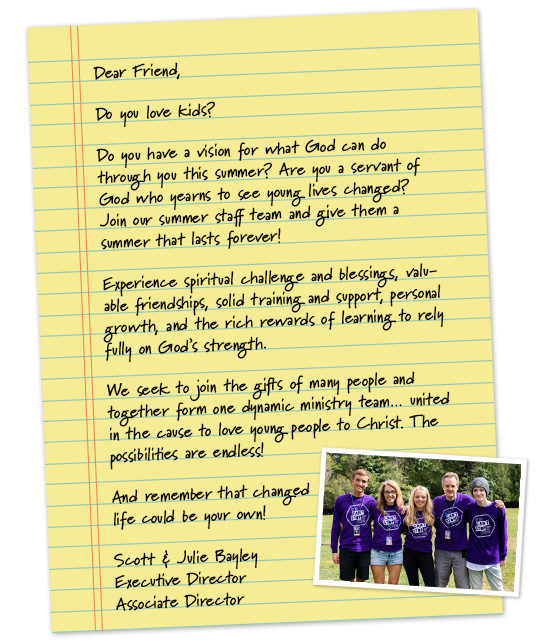 Dear Friend,
Do you love kids?
Do you have a vision for what God can do
through you this summer? Are you a servant of
God who yearns to see young lives changed?
Join our summer staff team and give them a
summer that lasts forever!
Experience spiritual challenge and blessings, valu-
able friendships, solid training and support, personal
growth, and the rich rewards of learning to rely
fully on God's strength.
We seek to join the gifts of many people and
together form one dynamic ministry team... united
in the cause to love young people to Christ. The
possibilities are endless!
And remember that changed
life could be your own!
Scott & Julie Bayley
Executive Director
Associate Director